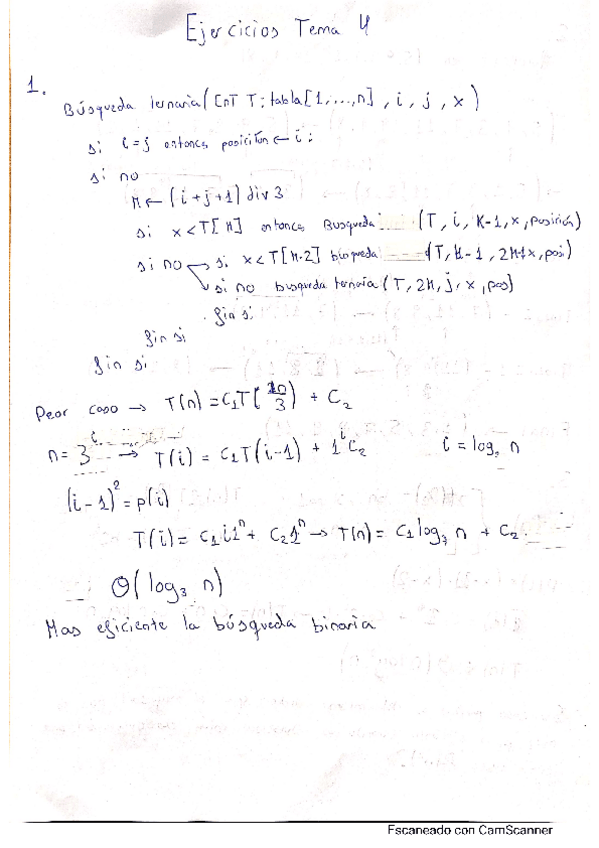 Ejercicios Tema 4
1.
Búsqueda ternaria (Ent T: tabla [1,...,n], i, j, x)
si i=j entonces posición ← i;
si no
M ← (i+j+1) div 3
si x<T[M] entonces Busqueda (T, i, K-1, x, posición)
si no si x<T[M·2] búsqueda (T, M-1, 2M+x, posi)
si no busqueda ternaria (T, 2M, j, x, pos)
fin si
fin si
fin si
Peor caso → T(n) = C₁T( n/3 ) + C₂
n=3 → T(i) = C₁T(i-1) + 1ⁱC₂ i = log₃ n
(i-1)² = p(i)
T(i) = C₁i1ⁿ + C₂1ⁿ → T(n) = C₁ log₃ n + C₂
Θ(log₃ n)
Mas eficiente la búsqueda binaria
Escaneado con CamScanner